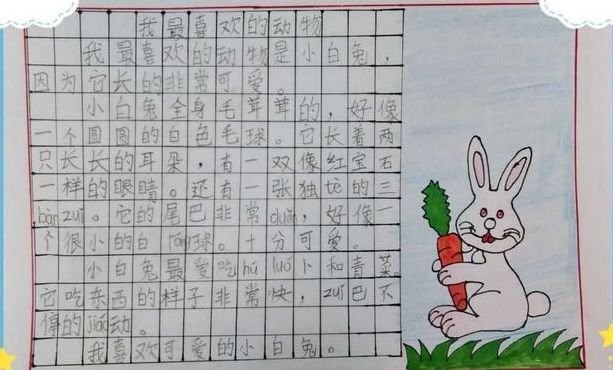 我最喜欢的动物
我最喜欢的动物是小白兔，
因为它长的非常可爱。
小白兔全身毛茸茸的，好像
一个圆圆的白色毛球。它长着两
只长长的耳朵，有一双像红宝石
一样的眼睛。还有一张独tè的三
bàn zuǐ。它的尾巴非常duǎn，好像一
个很小的白róng球。十分可爱。
小白兔最爱吃hú luó卜和青菜。
它吃东西的样子非常快，zuǐ巴不
停的jiáo动。
我喜欢可爱的小白兔。